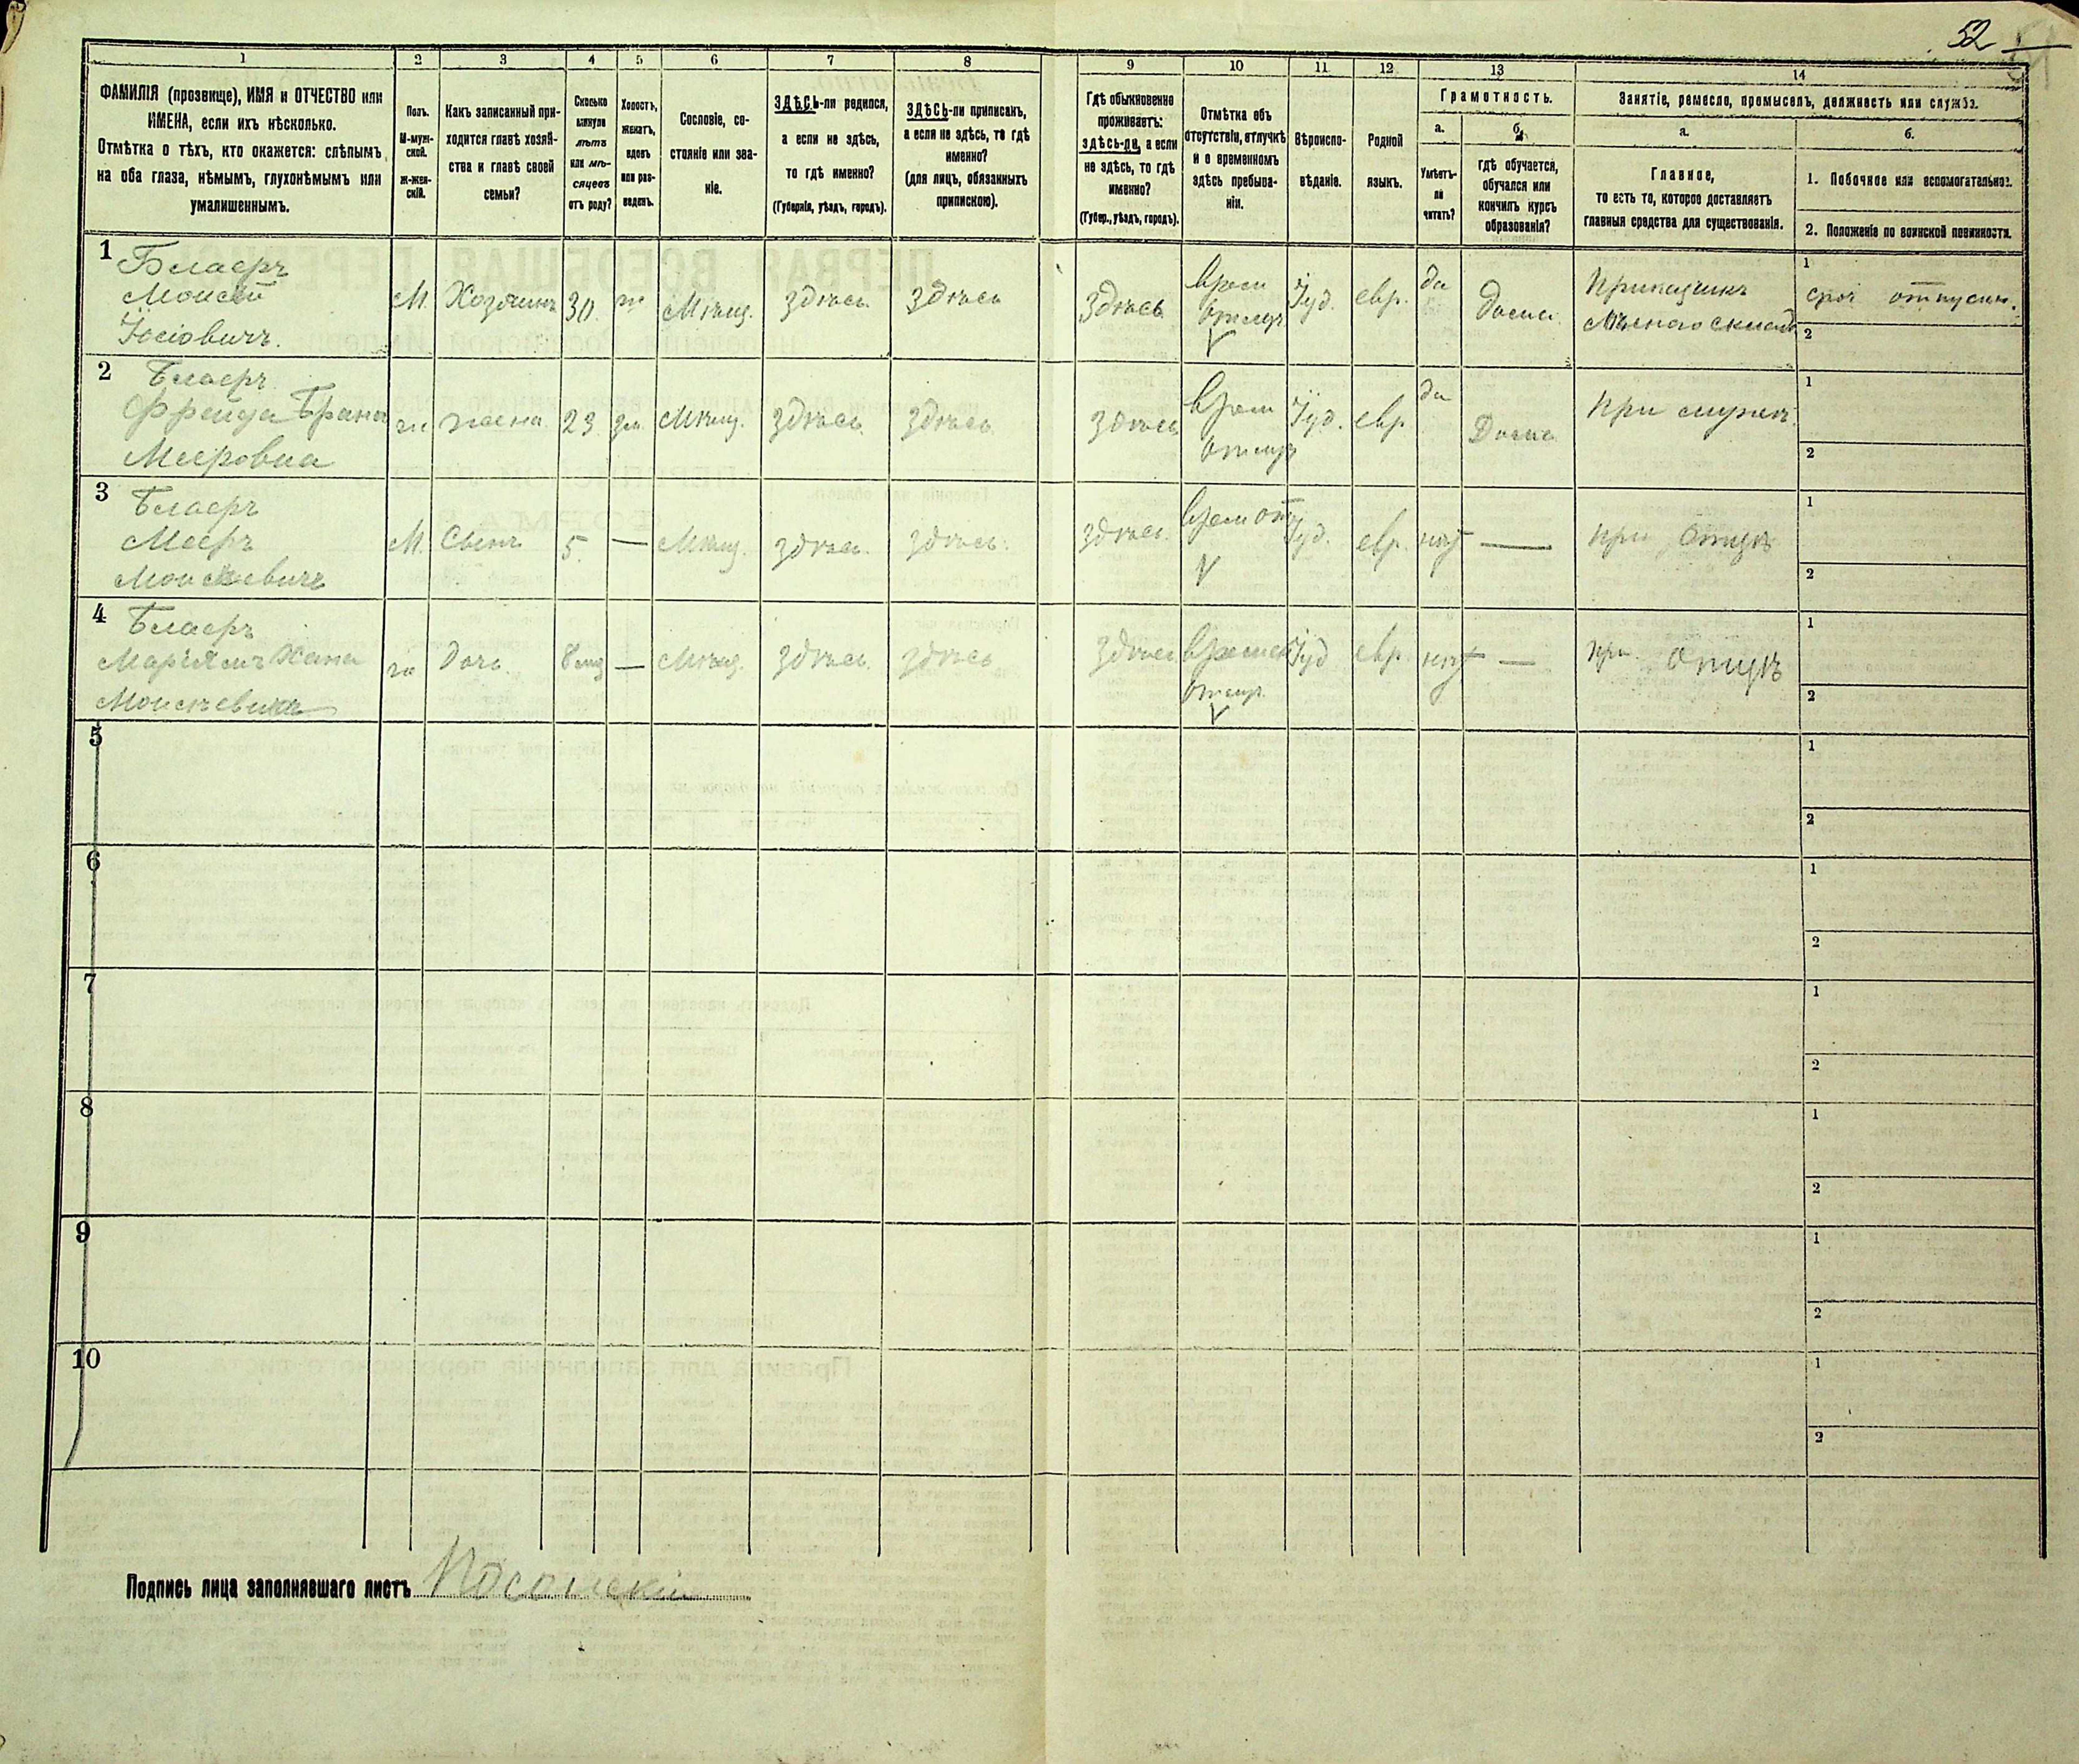 52
1
2
3
4
5
6
7
8
9
10
11
12
13
14
ФАМИЛІЯ (прозвище), ИМЯ и ОТЧЕСТВО или
ИМЕНА, если ихъ нѣсколько.
Отмѣтка о тѣхъ, кто окажется: слѣпымъ
на оба глаза, нѣмымъ, глухонѣмымъ или
умалишеннымъ.
Полъ.
М-муж-
ской.
Ж-жен-
скій.
Какъ записанный при-
ходится главѣ хозяй-
ства и главѣ своей
семьи?
Сколько
минуло
лѣтъ
или мѣ-
сяцевъ
отъ роду?
Холостъ,
женатъ,
вдовъ
или раз-
веденъ.
Сословіе, со-
стояніе или зва-
ніе.
ЗДѢСЬ-ли родился,
а если не здѣсь,
то гдѣ именно?
(Губернія, уѣздъ, городъ).
ЗДѢСЬ-ли приписанъ,
а если не здѣсь, то гдѣ
именно?
(для лицъ, обязанныхъ
припискою).
Гдѣ обыкновенно
проживаетъ:
здѣсь-ли, а если
не здѣсь, то гдѣ
именно?
(Губер., уѣздъ, городъ).
Отмѣтка объ
отсутствіи, отлучкѣ
и о временномъ
здѣсь пребыва-
ніи.
Вѣроиспо-
вѣданіе.
Родной
языкъ.
Грамотность.
а.
Умѣетъ-
ли
читать?
б.
гдѣ обучается,
обучался или
кончилъ курсъ
образованія?
Занятіе, ремесло, промыселъ, должность или служба.
а.
Главное,
то есть то, которое доставляетъ
главныя средства для существованія.
б.
1. Побочное или вспомогательное.
2. Положеніе по воинской повинности.
1
Блаеръ
Моисей
Іосіовичъ.
М.
Хозяинъ
30
ж
Мѣщ.
здѣсь
здѣсь
здѣсь
врем
отлуч
Іуд.
евр.
да
дома
Приказчикъ
1
2
2
Блаеръ
Фрейда Брана
Мееровна
ж
жена
23
зм
Мѣщ.
здѣсь
здѣсь
здѣсь
врем
отлуч
Іуд.
евр
да
Дома
при мужѣ
1
2
3
Блаеръ
Мееръ
Моисѣевичъ
М.
Сынъ
5.
—
Мѣщ.
здѣсь.
здѣсь.
здѣсь.
врем от
Іуд.
евр.
нѣт
—
при Отцѣ
1
2
4
Блаеръ
Маріямъ Хана
Моисѣевна
ж
Дочь.
8 мц
—
Мѣщ.
здѣсь.
здѣсь
здѣсь
времен
отлуч.
Іуд
евр.
нѣт
—
при Отцѣ
1
2
5
1
2
6
1
2
7
1
2
8
1
2
9
1
2
10
1
2
Подпись лица заполнявшаго листъ